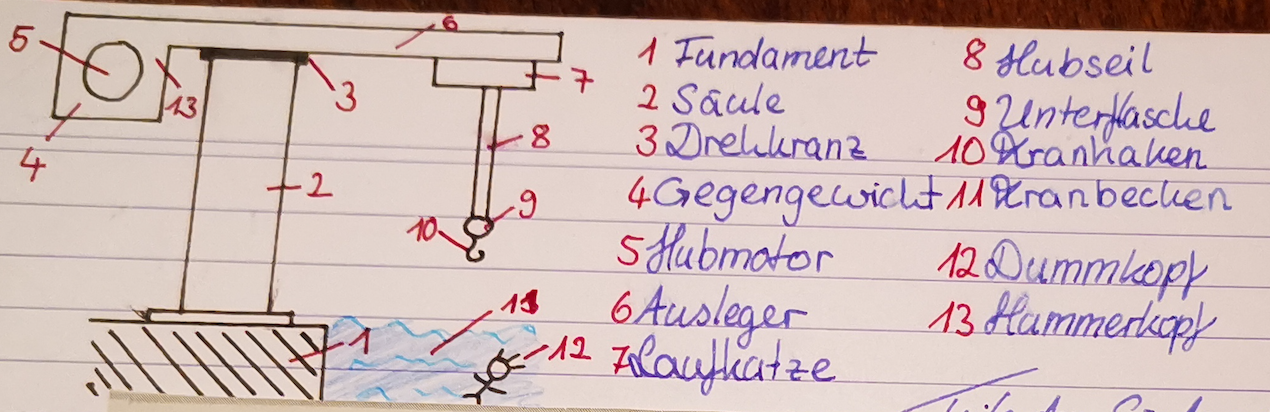 6
5
7
13
3
4
8
2
9
10
11
1
12
1 Fundament
2 Säule
3 Drehkranz
4 Gegengewicht
5 Hubmotor
6 Ausleger
7 Laufkatze
8 Hubseil
9 Unterflasche
10 Kranhaken
11 Kranbecken
12 Dummkopf
13 Hammerkopf